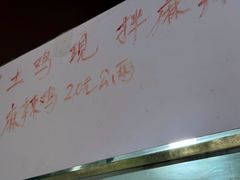 土鸡现拌麻
麻辣鸡20元公两